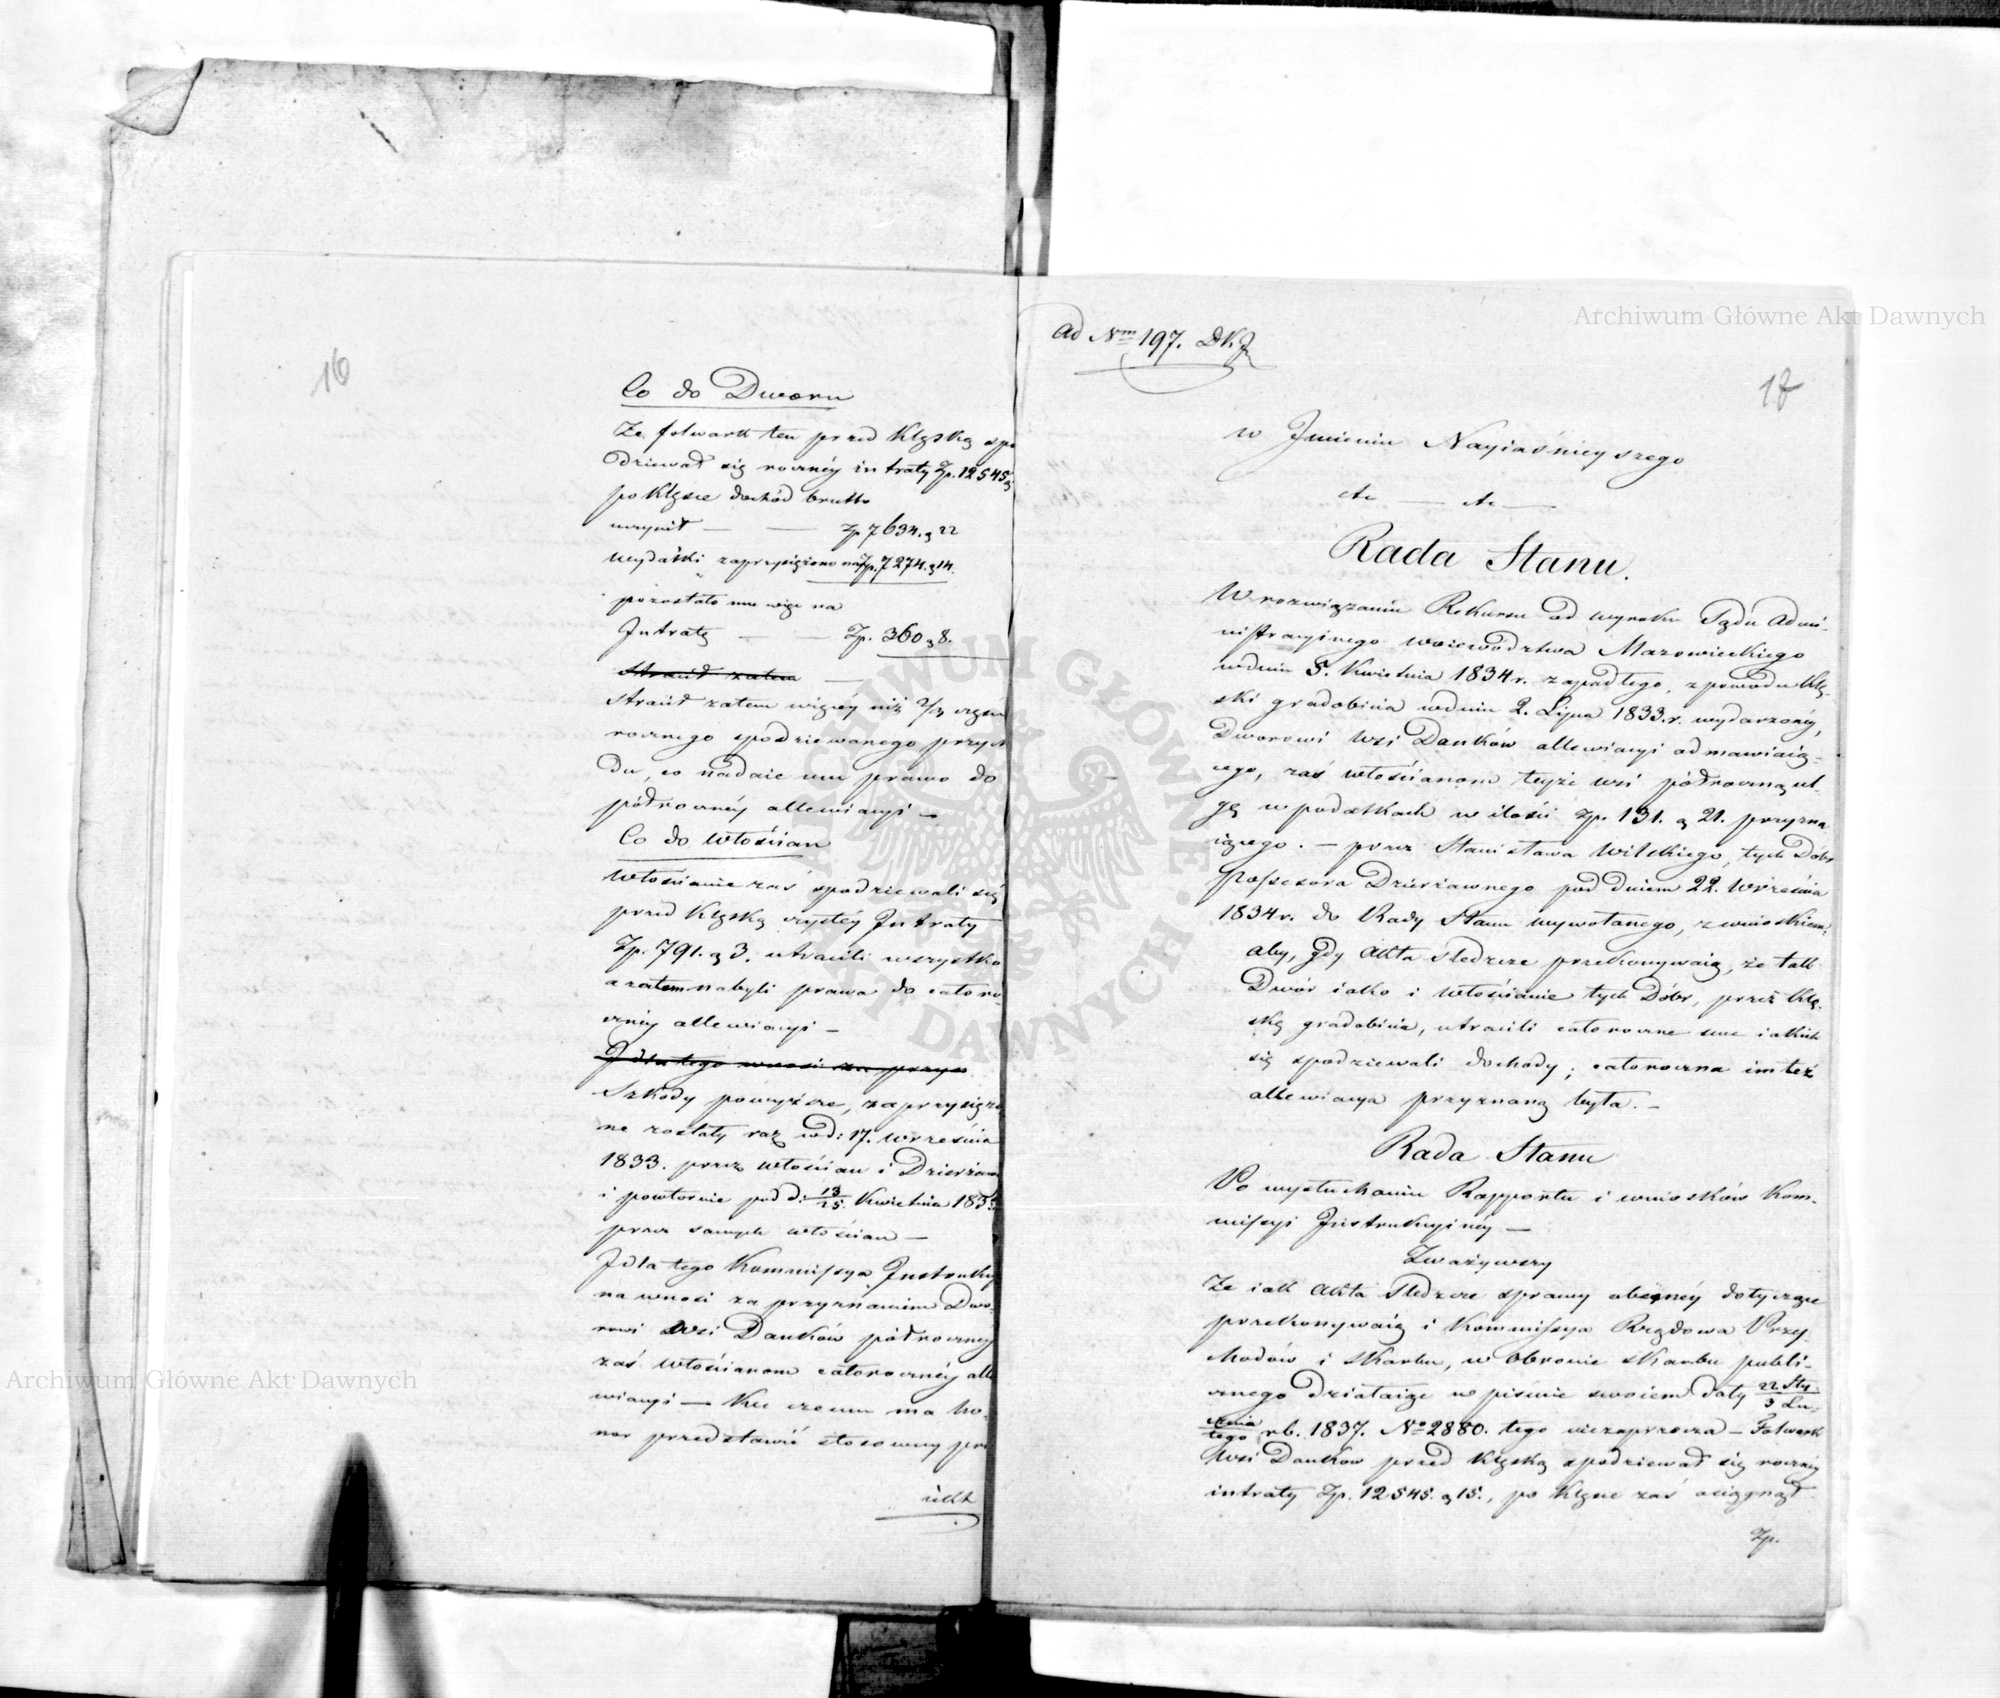 16
Co do Dworu
Że folwark ten przed Klęską spo
dziewał się rocznéy intraty Zp. 12545 g
po Klęsce dochód brutto
uczynił — — Zp 7634. g 22
wydatki zaprzysiężono na Zp. 7274. g 14.
pozostało mu więc na
Intratę — — Zp. 360 g 8.
Stracił zatem —
stracił zatem więcéy niż 2/3 części
rocznego spodziewanego przych
du, co nadaie mu prawo do
półrocznéy allewiacyi —
Co do Włościan
Włościanie zaś spodziewali się
przed Klęską czystéy Intraty
Zp. 791. g 3. utracili wszystko
a zatem nabyli prawa do całoro
cznéy allewiacyi —
I dla tego wnosi za przyz
Szkody powyższe, zaprzysiężo
ne zostały raz w d: 17. Września
1833. przez włościan i Dzierżaw
i powtornie pod d: 13/25. Kwietnia 183
przez samych włościan —
I dla tego Kommissya Instrukcy
na wnosi za przyznaniem Dwo
rowi Wsi Danków półrocznéy
zaś włościanom całorocznéy alle
wiacyi — Ku czemu ma ho
nor przedstawić stosowny pro
iekt
ad Nrm 197. D.K.J.
17
w Imieniu Nayiaśnieyszego
etc — etc —
Rada Stanu.
W rozwiązaniu Rekursu od wyroku Sądu Admi-
nistracyinego woiewództwa Mazowieckiego
w dniu 5. Kwietnia 1834 r. zapadłego, z powodu klę-
ski gradobicia w dniu 2. Lipca 1833. r. wydarzonéy,
Dworowi wsi Danków allewiacyi odmawiaią-
cego, zaś włościanom teyże wsi półroczną ul-
gę w podatkach w ilości Zp. 131. g 21. przyzna
iącego. — przez Stanisława Wilskiego, tych Dóbr
Possesora Dzierżawnego pod dniem 22. Września
1834 r. do Rady Stanu wywołanego, z wnioskiem:
aby, gdy Akta śledcze przekonywaią, że tak
Dwór iako i włościanie tych Dóbr, przez klę-
skę gradobicia, utracili całoroczne swe iakich
się spodziewali dochody; całoroczna im też
allewiacya przyznaną była. —
Rada Stanu
Po wysłuchaniu Rapportu i wniosków Kom-
missyi Instrukcyinéy —
Zważywszy
Że iak Akta śledcze sprawy obecnéy dotyczące
przekonywaią i Kommissya Rządowa Przy-
chodów i Skarbu, w obronie skarbu publi-
cznego działaiąc w piśmie swoiem daty 22 Sty-/3 Lu-
cznia/tego r. b. 1837. No 2880. tego niezaprzecza — Folwark
wsi Danków przed klęską spodziewał się rocznéy
intraty Zp. 12545. g 15., po klęsce zaś osiągnął
Zp.
Archiwum Główne Akt Dawnych
Archiwum Główne Akt Dawnych
ARCHIWUM GŁÓWNE AKT DAWNYCH